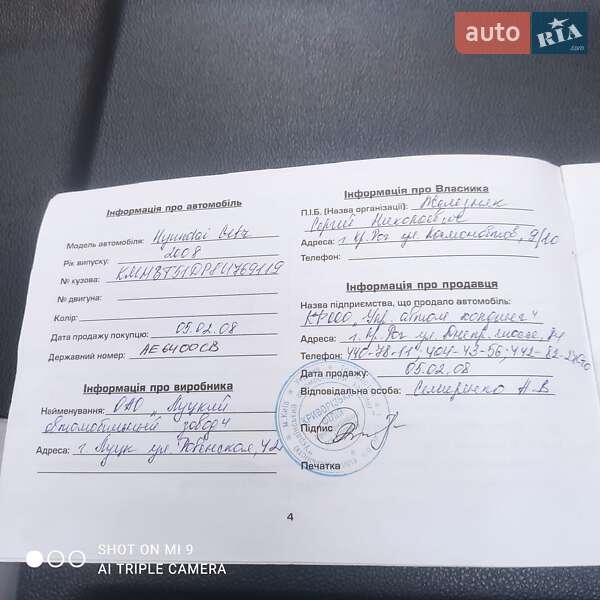 auto RIA .com
Інформація про автомобіль
Модель автомобіля: Hyundai Getz
Рік випуску: 2008
№ кузова: KMHBT51DP8U769119
№ двигуна:
Колір:
Дата продажу покупцю: 05.02.08
Державний номер: AE6400CB
Інформація про виробника
Найменування: ОАО „Луцкий
автомобильный завод"
Адреса: г. Луцк ул. Ровенская, 42
Інформація про Власника
П.І.Б. (Назва організації):
Сергій Николаевич
Адреса: г. Кр. Рог ул. Космонавтов, 9/20
Телефон:
Інформація про продавця
Назва підприємства, що продало автомобіль:
Укр. автом.
Адреса: г. Кр. Рог ул. Днепр. шоссе,
Телефон: 440-78-11, 404-43-56,
Дата продажу: 05.02.08
Відповідальна особа: Семеренко А.В
Підпис
Печатка
4
SHOT ON MI 9
AI TRIPLE CAMERA